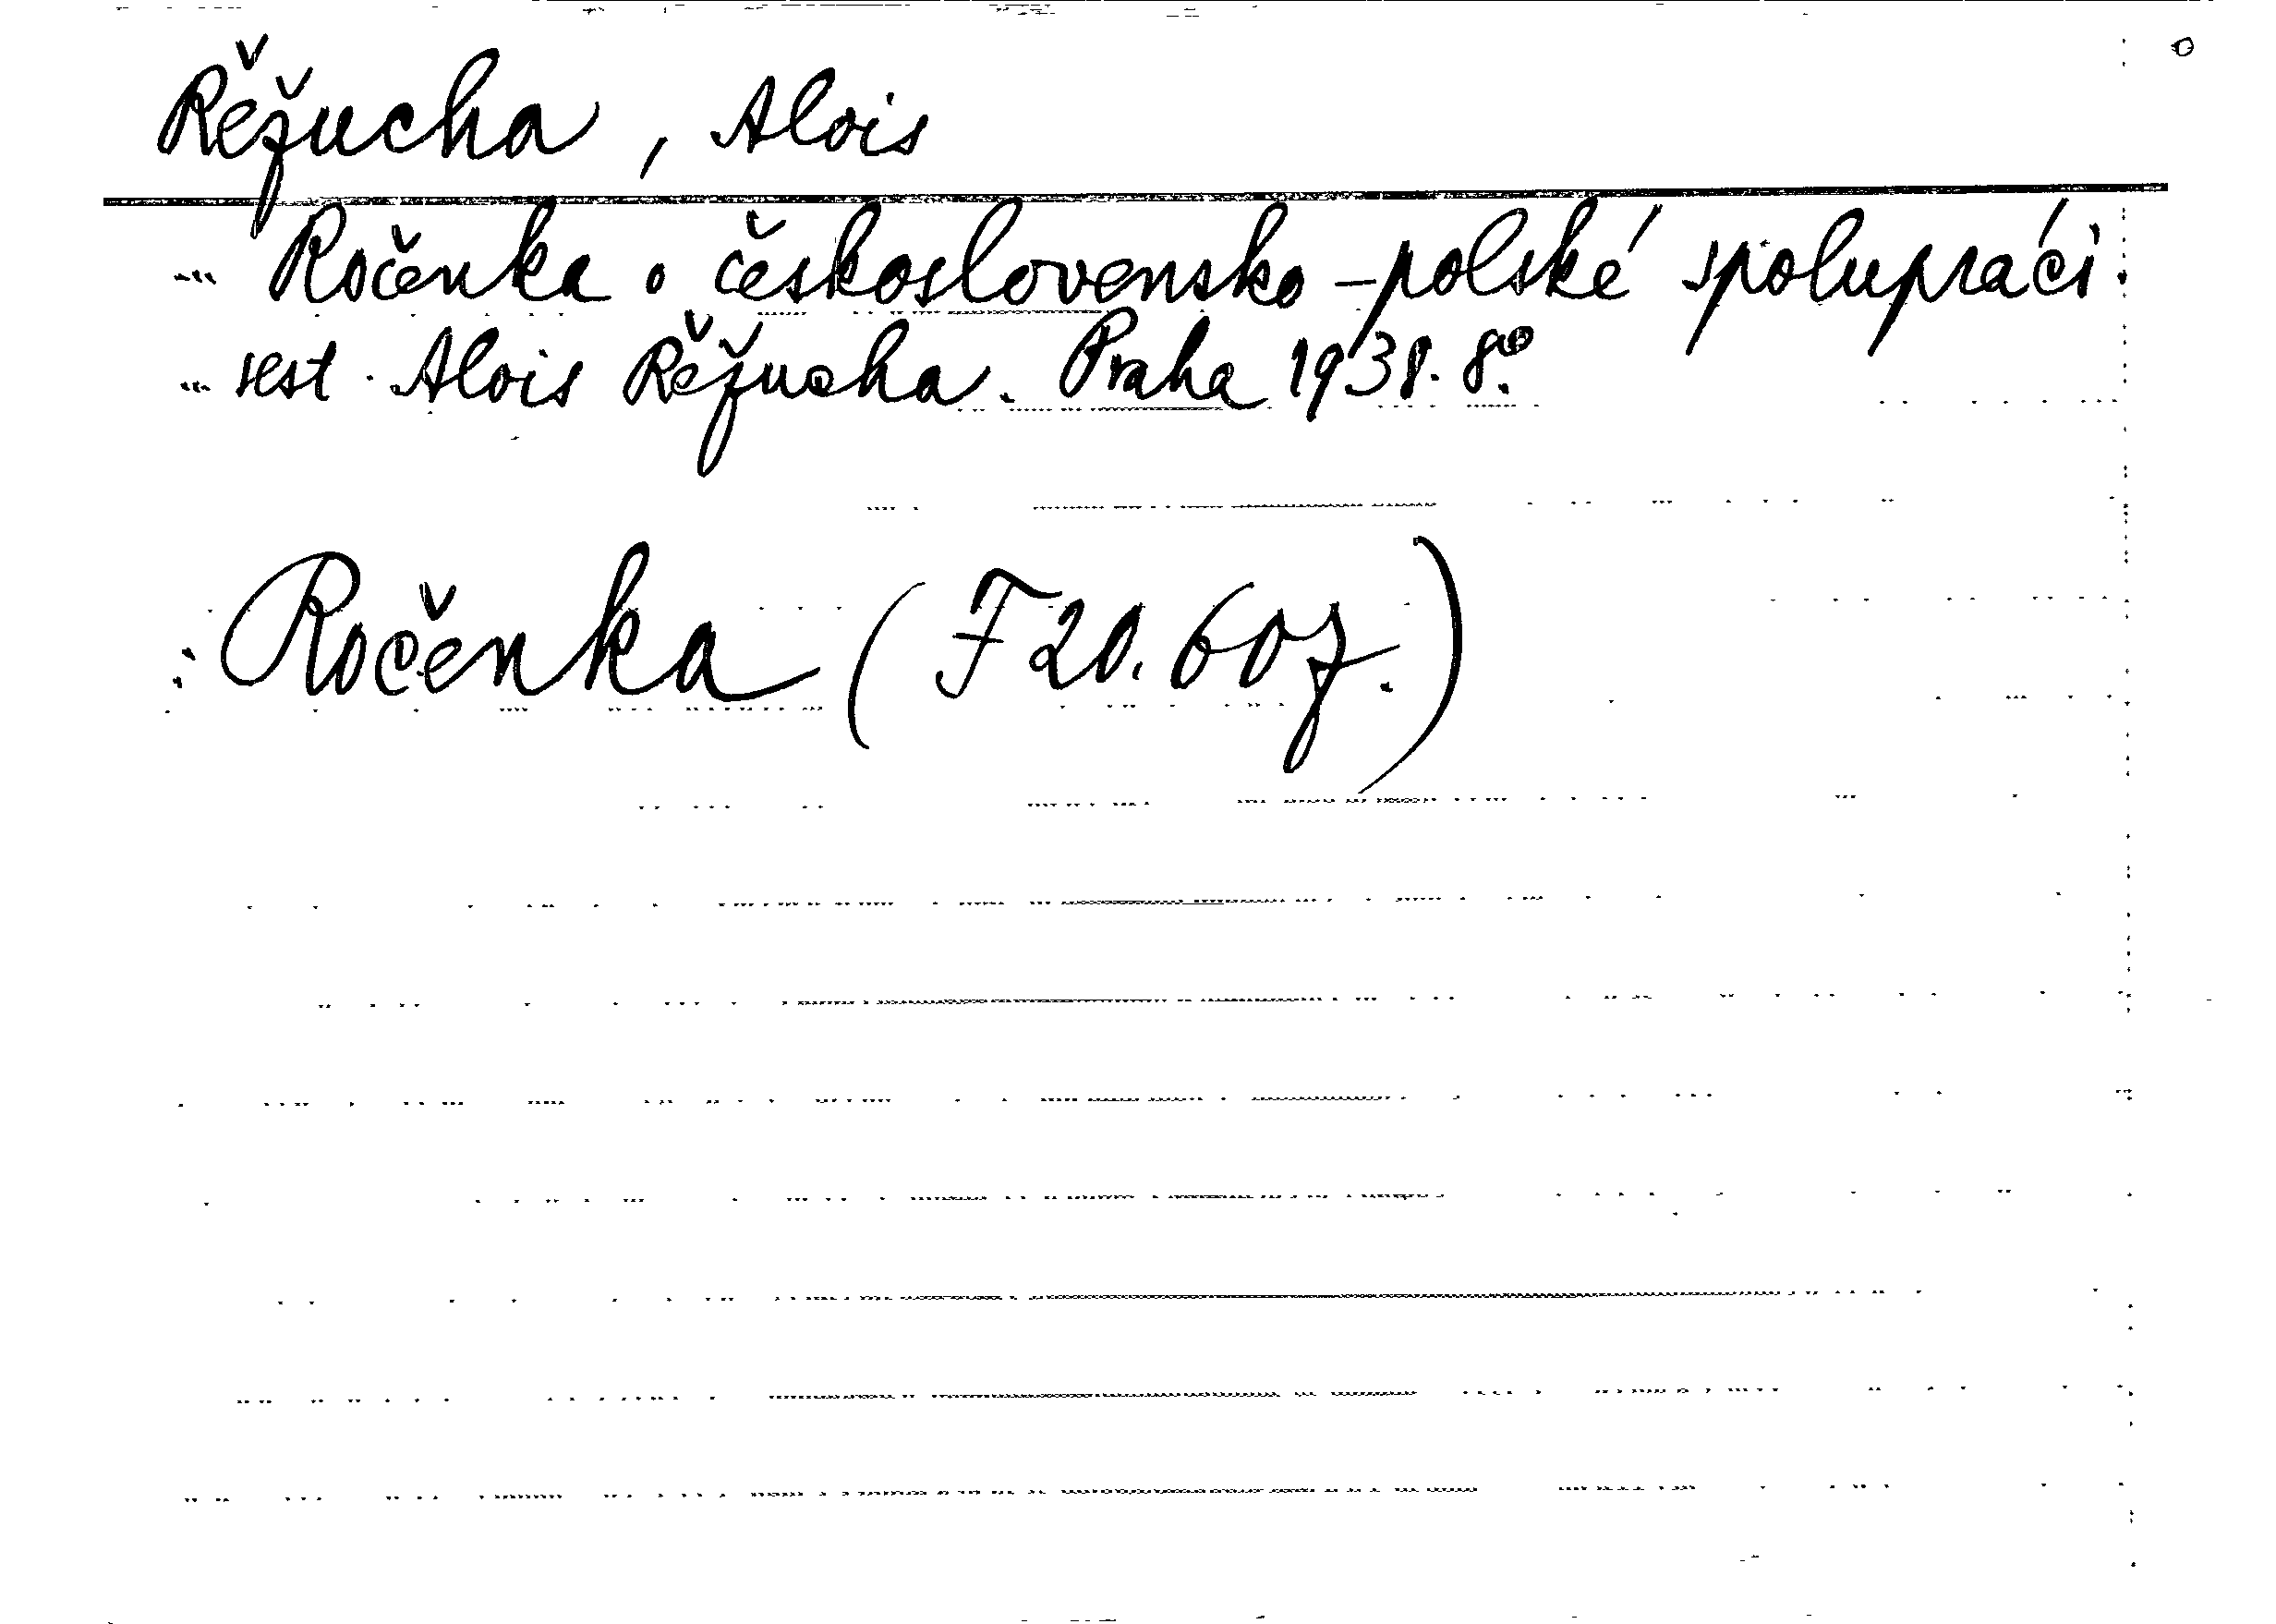 Řežucha, Alois
Ročenka o československo-polské spolupráci.
sest. Alois Řežucha. Praha 1938. 8°.
Ročenka (F 20.60z.)